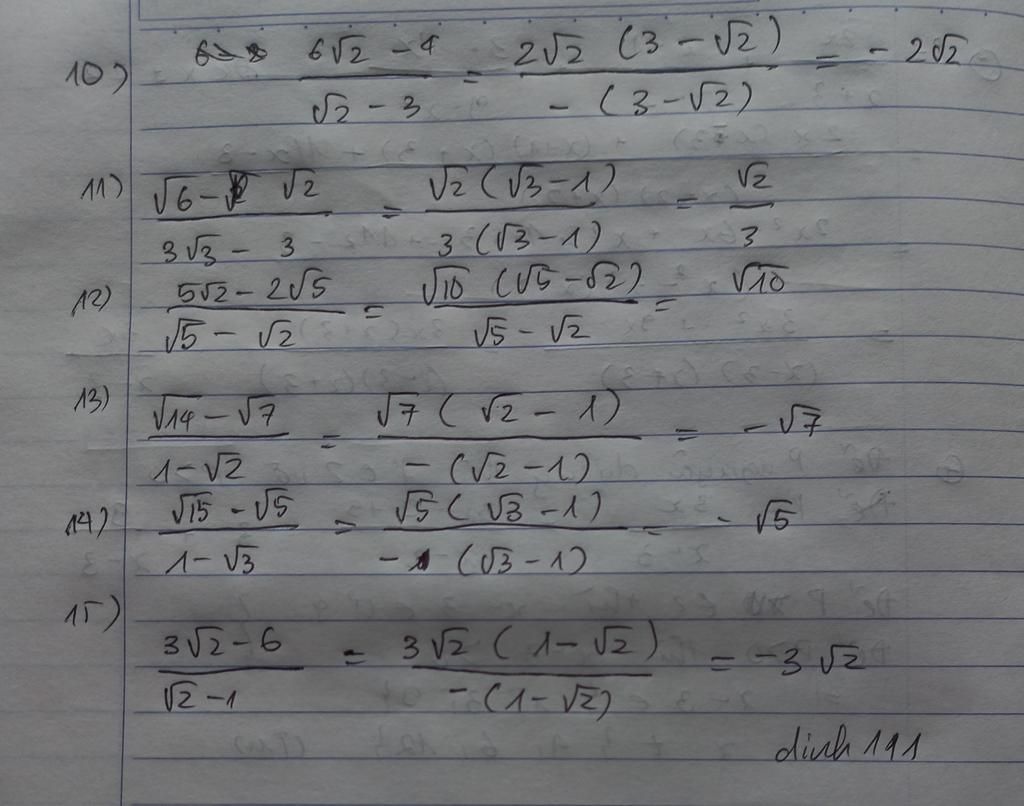 10) (6√2 - 4)/(√2 - 3) = (2√2 (3 - √2))/(- (3 - √2)) = - 2√2
11) (√6 - √2)/(3√3 - 3) = (√2 (√3 - 1))/(3 (√3 - 1)) = √2/3
12) (5√2 - 2√5)/(√5 - √2) = (√10 (√5 - √2))/(√5 - √2) = √10
13) (√14 - √7)/(1 - √2) = (√7 (√2 - 1))/(- (√2 - 1)) = - √7
14) (√15 - √5)/(1 - √3) = (√5 (√3 - 1))/(- (√3 - 1)) = - √5
15) (3√2 - 6)/(√2 - 1) = (3√2 (1 - √2))/(- (1 - √2)) = - 3√2
dinh 191